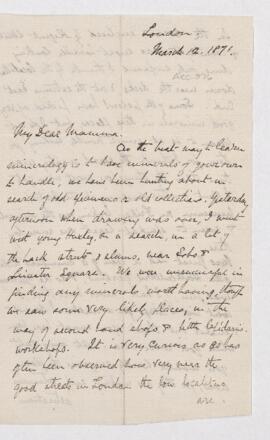 London
March 12. 1871.
My Dear Mamma.
As the best way to learn
mineralogy is to have minerals of your own
to handle, we have been hunting about in
search of old specimens & old collections. Yesterday
afternoon when drawing was over, I went
with young Huxley, on a search, in a lot of
the back streets & slums, near Soho &
Leicester Square. We were unsuccessful in
finding any minerals worth having though
we saw some very likely places, in the
way of second hand shops & little lapidaries
workshops. It is very curious, as has
often been observed how very near the
good streets in London the low localities
are.